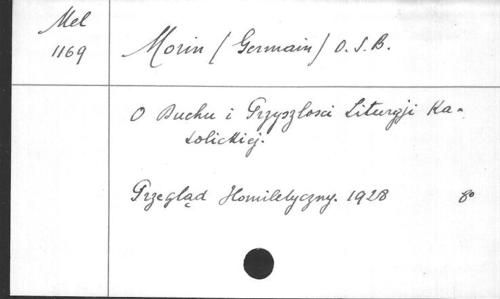 Mel
1169
Morin / Germain / O. S. B.
O Duchu i Przyszlosci Liturgji Ka-
tolickiej.
Przegląd Homiletyczny. 1928 8°